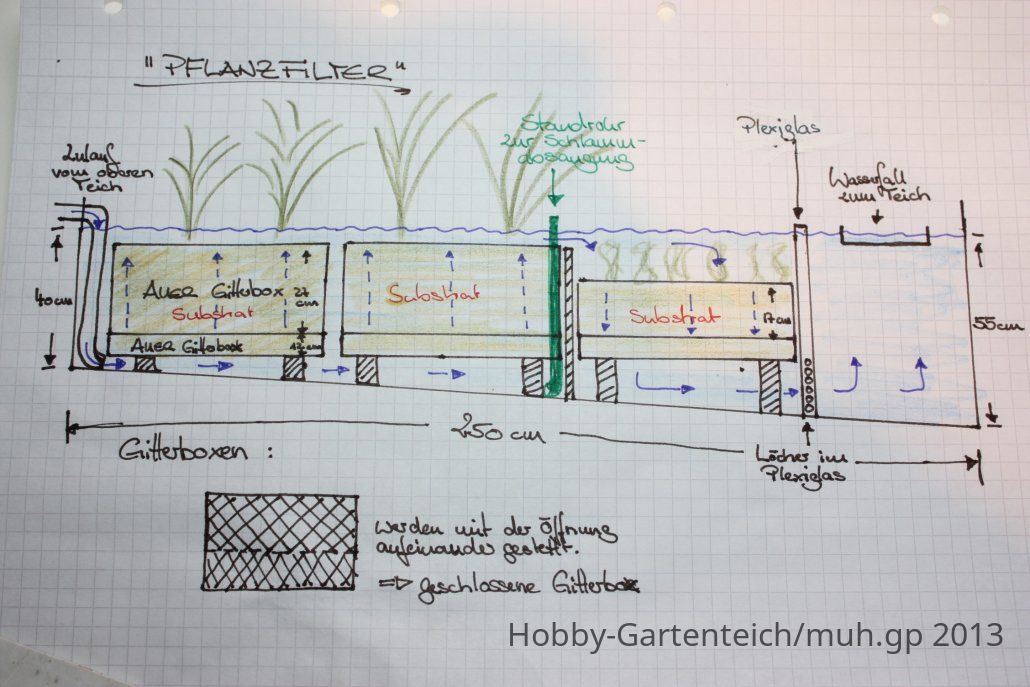 "PFLANZFILTER"
Zulauf
vom oberen
Teich
Standrohr
zur Schlamm-
absaugung
Plexiglas
Wasserfall
zum Teich
40cm
AUER Gitterbox
Substrat
27
cm
AUER Gitterbox
12 cm
Substrat
Substrat
17cm
55cm
250 cm
Löcher im
Plexiglas
Gitterboxen :
werden mit der Öffnung
aufeinander gestellt.
=> geschlossene Gitterbox
Hobby-Gartenteich/muh.gp 2013